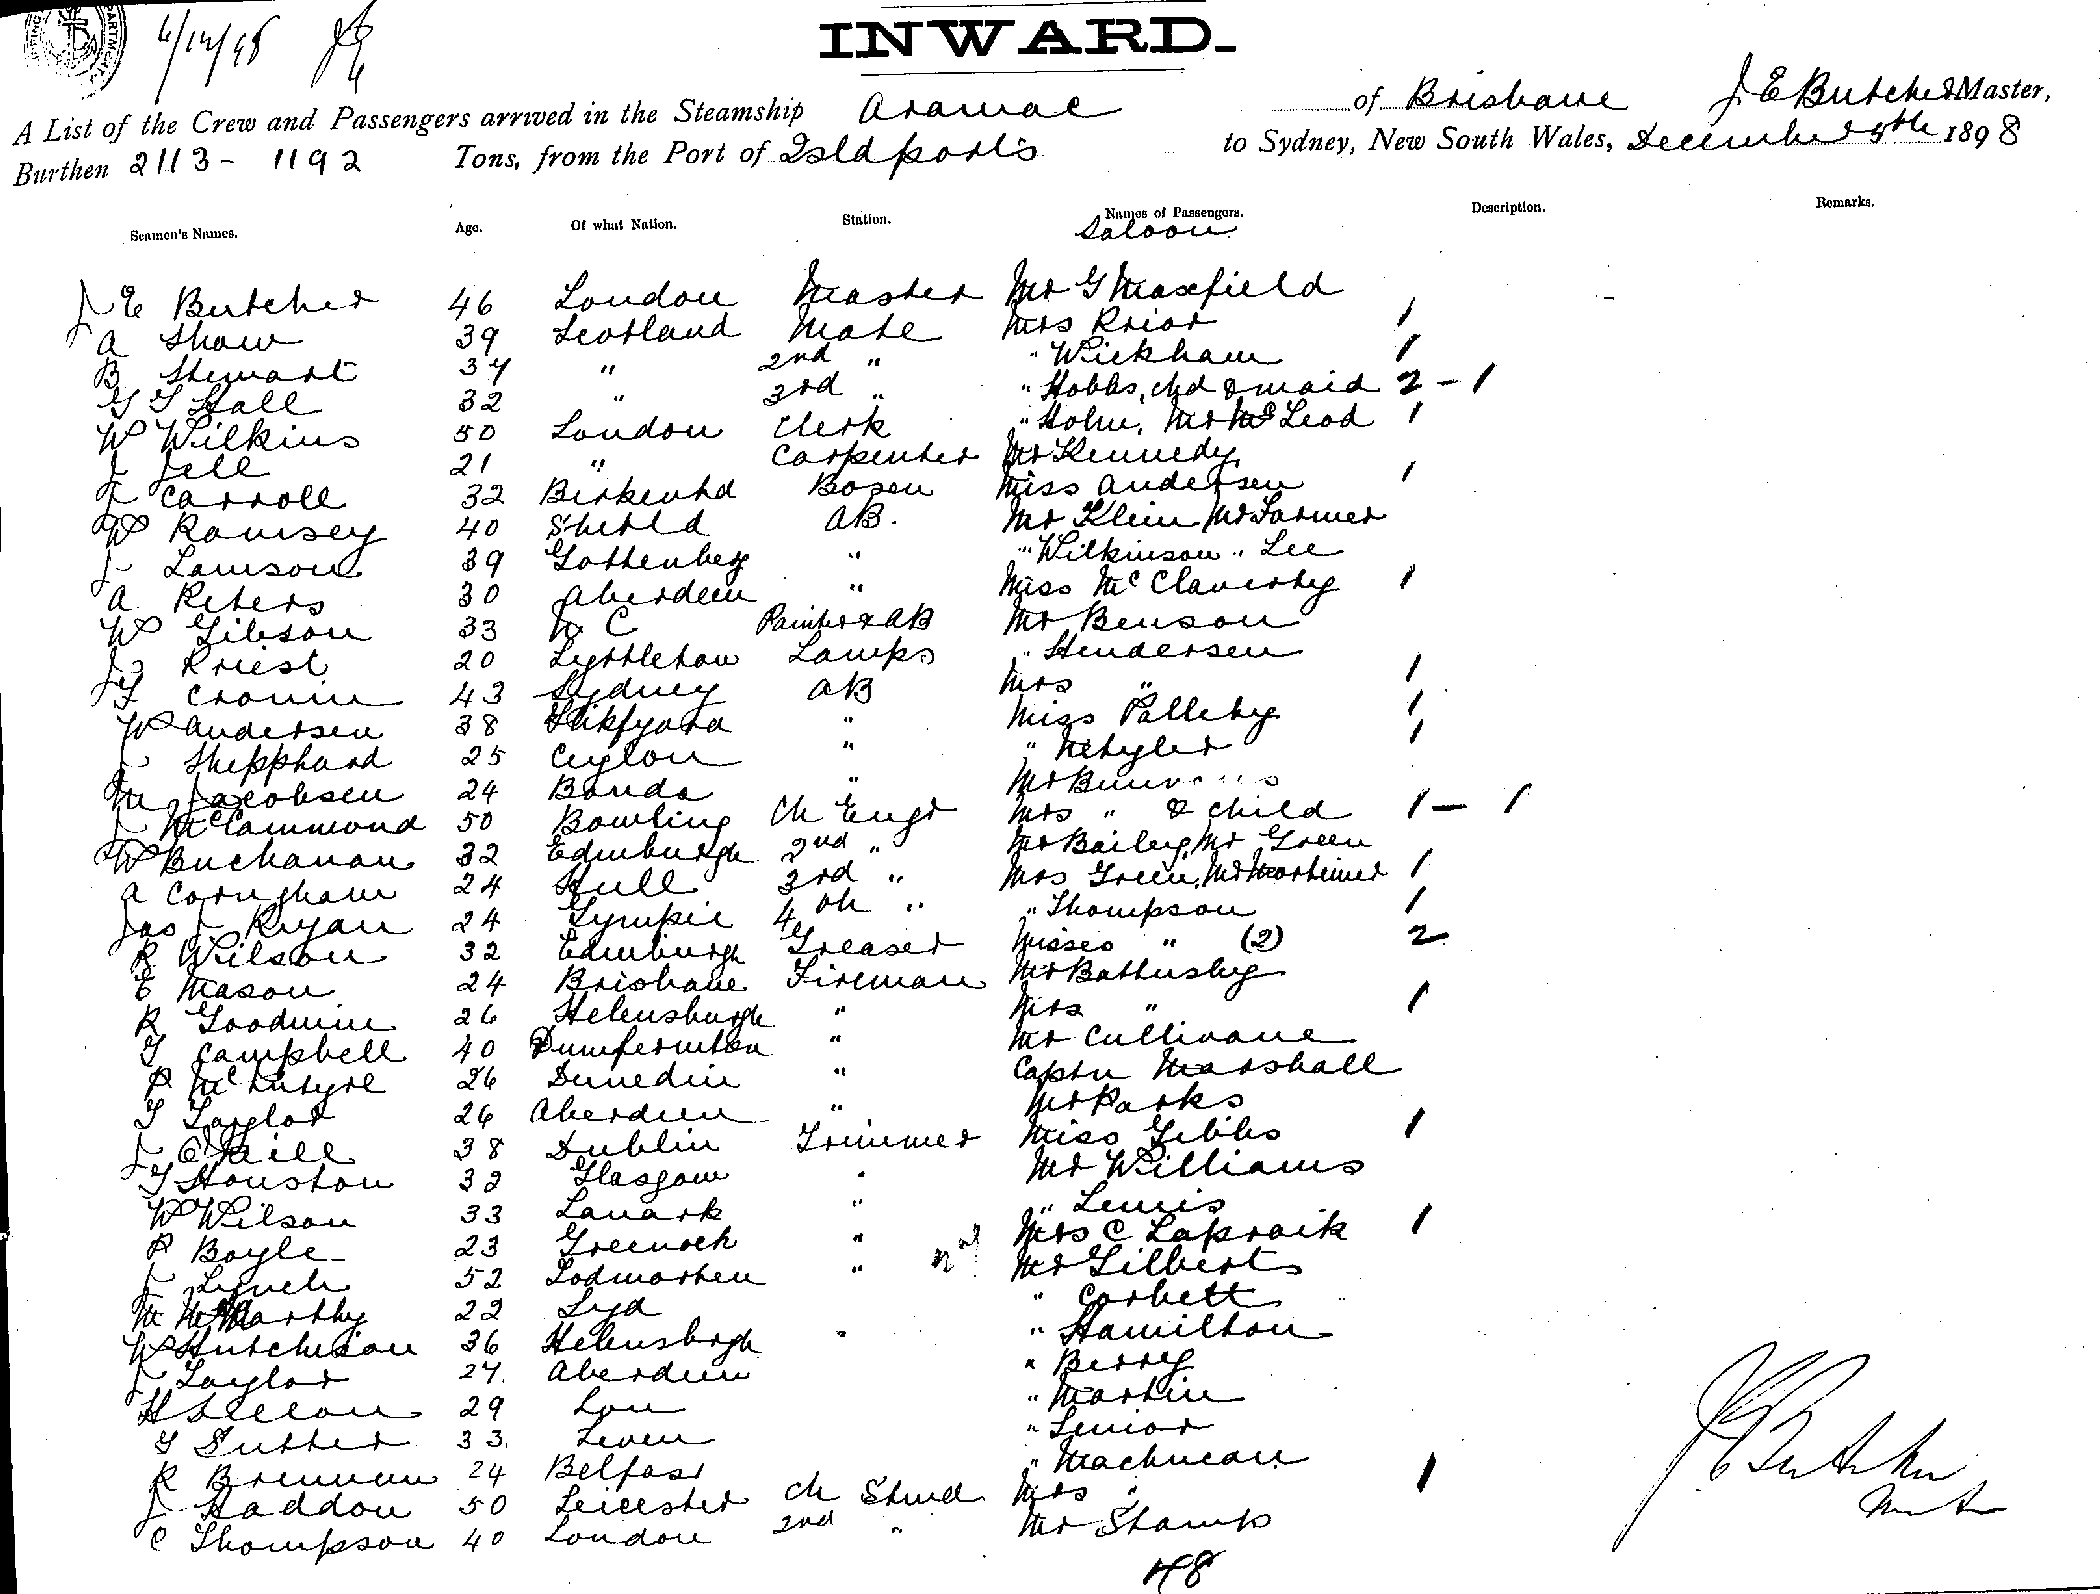 6/12/98
INWARD.
A List of the Crew and Passengers arrived in the Steamship Aramac of Brisbane J. E Butcher Master,
Burthen 2113 - 1192 Tons, from the Port of Qsld ports to Sydney, New South Wales, December 5th 1898
Seamen's Names. Age. Of what Nation. Station. Names of Passengers. Description. Remarks.
Saloon
J E Butcher 46 London Master Mr G Maxfield
A Shaw 39 Scotland Mate Mrs Prior 1
B Stewart 37 " 2nd " " Wickham 1
Hall 32 " 3rd " " Hobbs, chd & maid 2 - 1
W Wilkins 50 London Clerk " Holm, Mr McLeod 1
J Jell 21 " Carpenter Mr Kennedy
J Carroll 32 Birkenhd Bosen Miss Andersen 1
W Ramsey 40 Shetld AB. Mr Klein Mr Farmer
J Lamson 39 Gottenberg " " Wilkinson " Lee
A Peters 30 Aberdeen " Miss McClaverty 1
W Gibson 33 N C Painter & AB Mr Benson
Priest 20 Lyttleton Lamps " Hendersen
Cronin 43 Sydney AB Mrs " 1
W Andersen 38 " Miss Palleby 1
J Shepphard 25 Ceylon " " 1
M Jacobsen 24 " Mr
J McCammond 50 Bowling Ch Engr Mrs " & child 1 - 1
W Buchanan 32 Edinburgh 2nd " Mr Bailey, Mr Green
A Corngham 24 Hull 3rd " Mrs Green, Mr Mortimer 1
Jas J Ryan 24 Gympie 4th " " Thompson 1
R Wilson 32 Edinburgh Greaser Misses " (2) 2
E Mason 24 Brisbane Fireman Mr Battersby
R Goodwin 26 Helensburgh " Mrs " 1
T Campbell 40 " Mr Cullivane
P McIntyre 26 Dunedin " Captn Marshall
T Taylor 26 Aberdeen " Mr Parks
J O'Neill 38 Dublin Trimmer Miss Gibbs 1
T Houston 32 Glasgow " Mr Williams
W Wilson 33 Lanark " " Lewis
P Boyle 23 Greenock " Mrs C Lapraik 1
J Lynch 52 Todmorten " Mr Gilbert
M McCarthy 22 Lyd " Corbett
W Hutchison 36 Helensbrgh " " Hamilton
J Taylor 27 Aberdeen " Berry
29 " Martin
T Sutter 33 Leven " Senior
R Brennan 24 Belfast " Machnean
J Haddon 50 Leicester Ch Stwd Mrs " 1
C Thompson 40 London 2nd " Mr Stamp
48
J E Butcher
Master